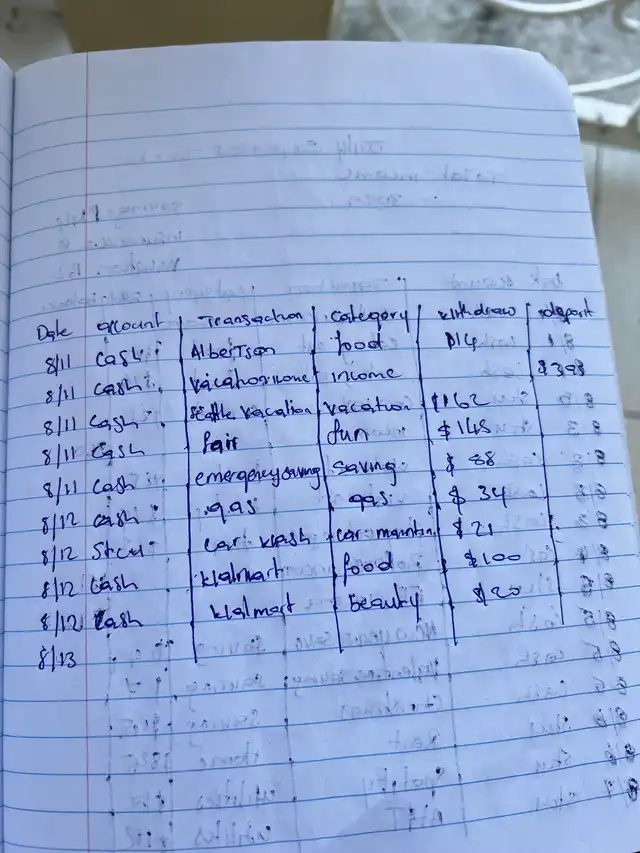 Date account Transaction Category withdraw deposit
8/11 Cash Albertson food $14
8/11 Cash vacation home income $398
8/11 Cash Seattle vacation vacation $162
8/11 Cash fair fun $148
8/11 Cash emergency saving saving $88
8/12 cash gas gas $34
8/12 car wash car $21
8/12 Cash Walmart food $100
8/12 Cash Walmart beauty $20
8/13